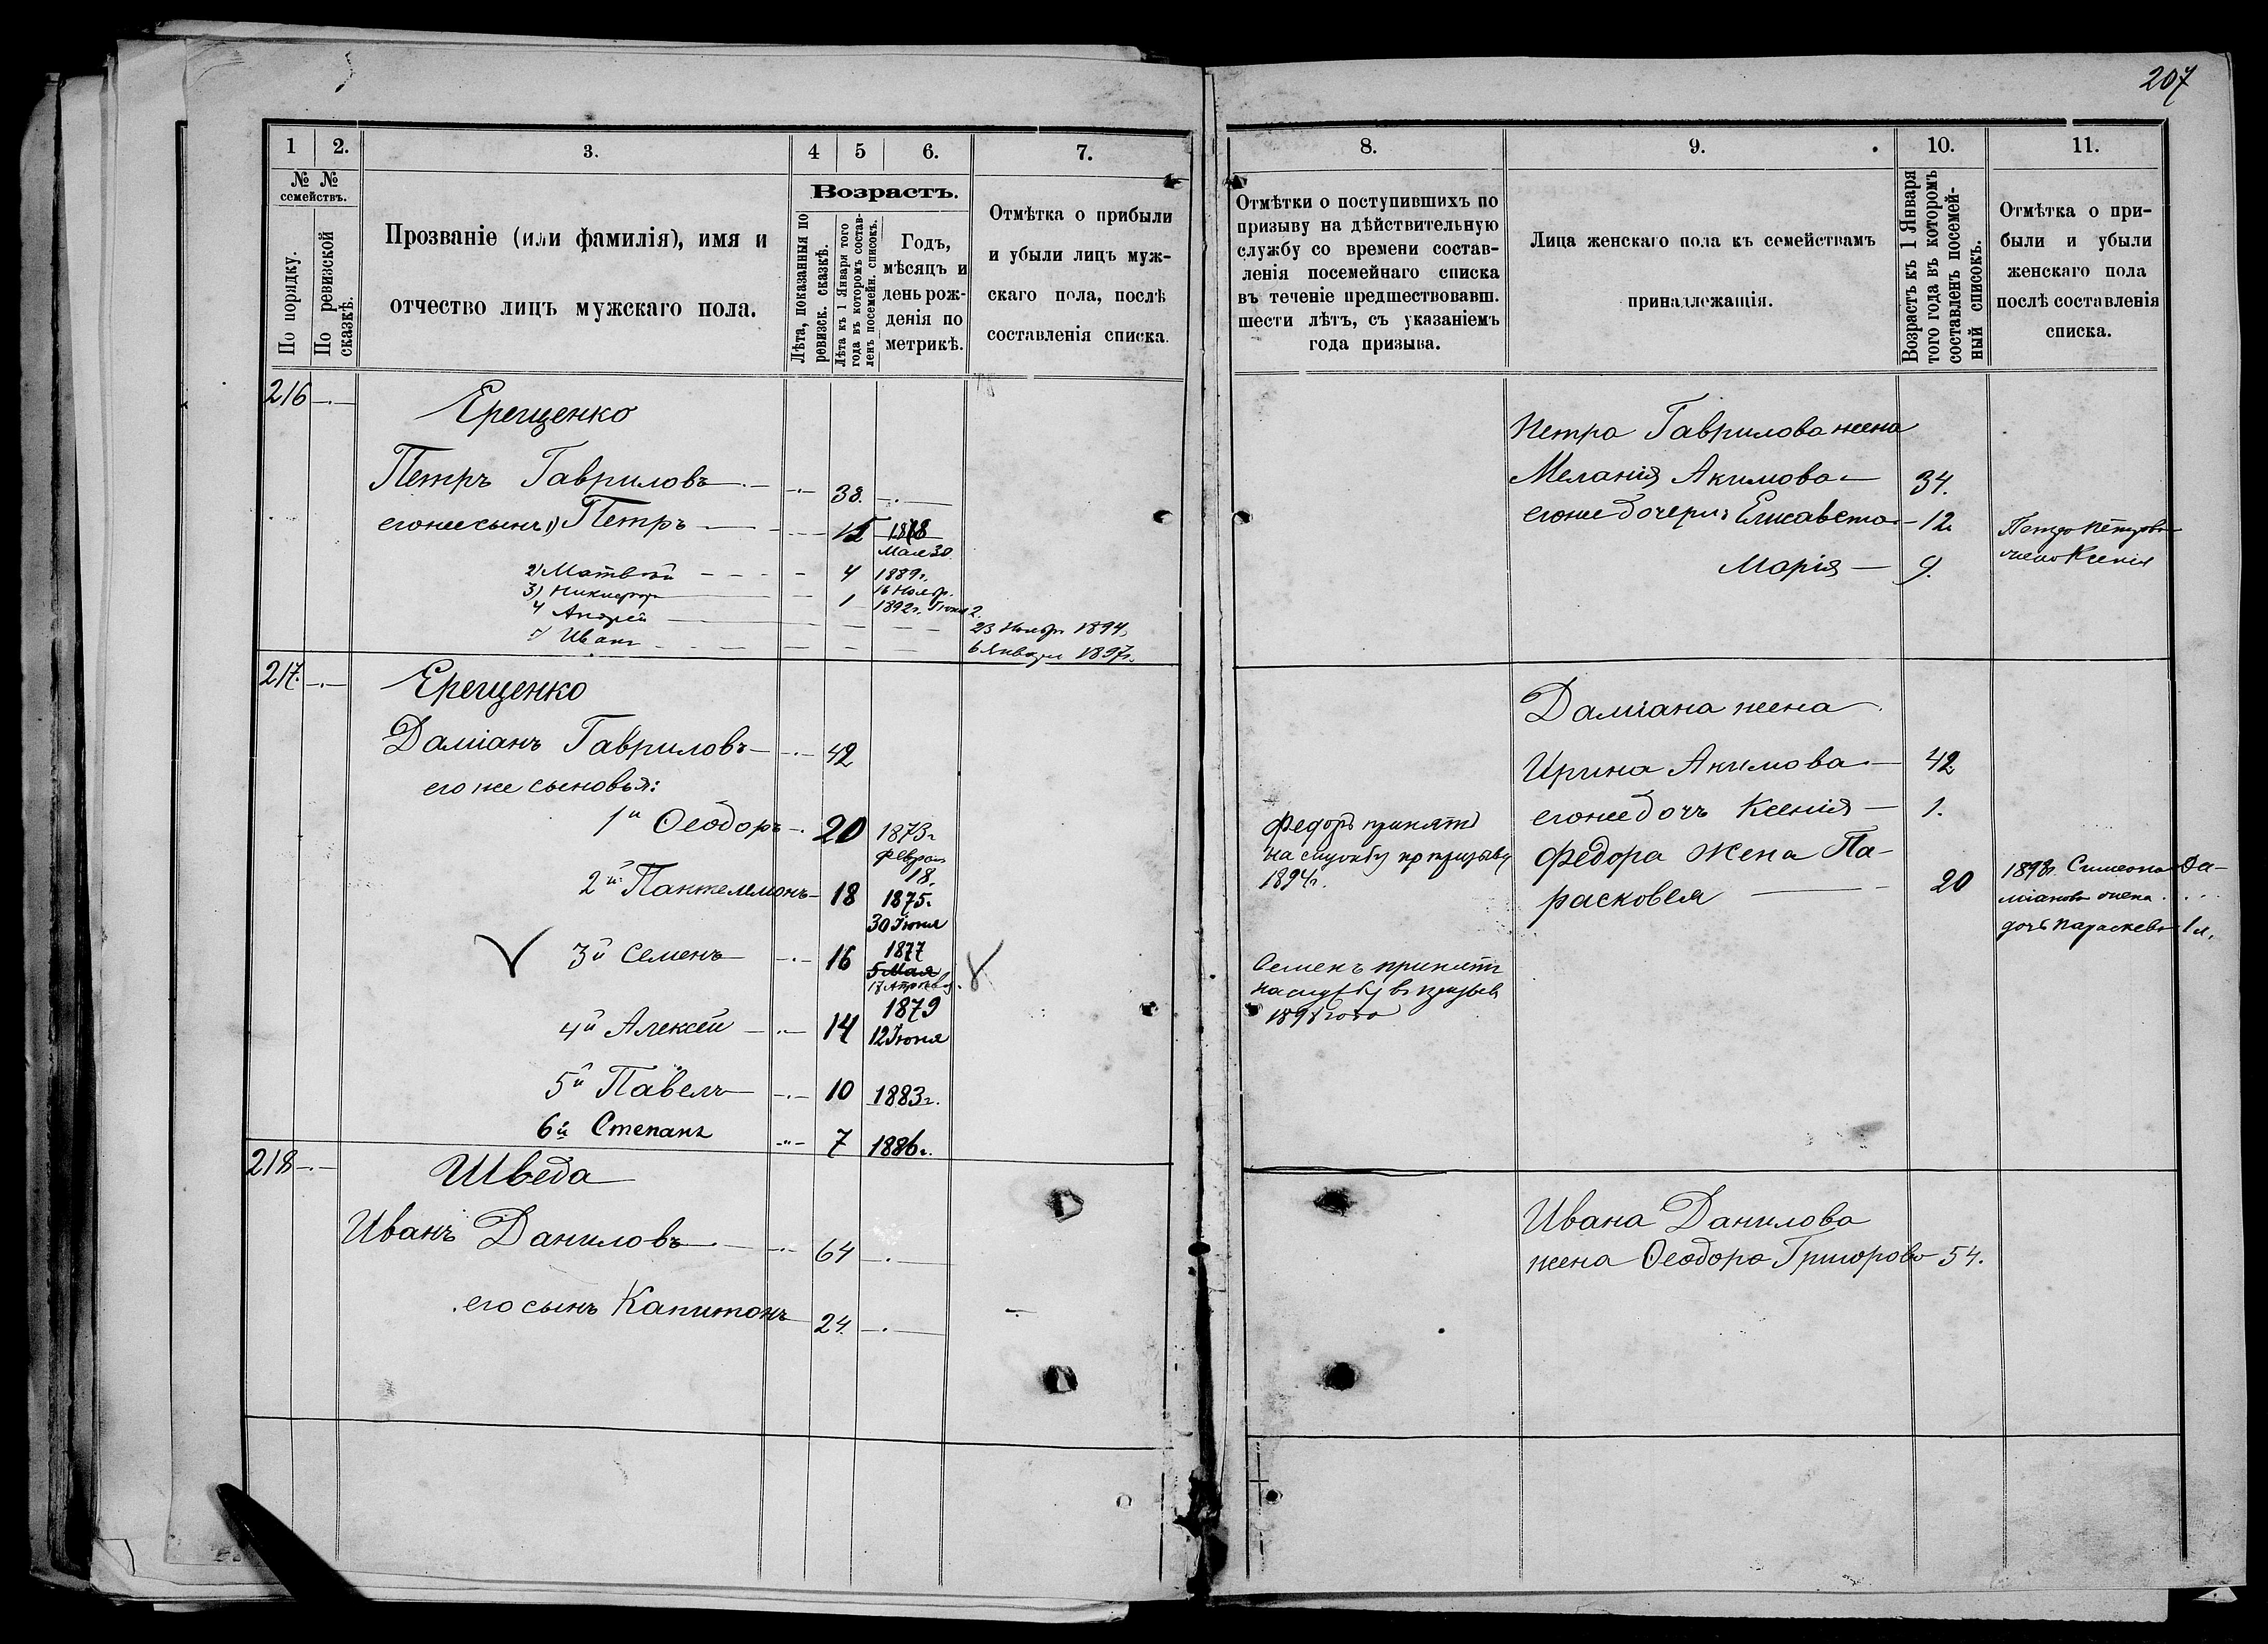 207
1 2. 3. 4 5 6. 7.
№ №
семействъ.
По порядку.
По ревизской
сказкѣ.
Прозваніе (или фамилія), имя и
отчество лицъ мужскаго пола.
Возрастъ.
Лѣта, показанныя по
ревизск. сказкѣ.
Лѣта къ 1 Января того
года въ которомъ состав-
ленъ посемейн. списокъ.
Годъ,
мѣсяцъ и
день рож-
денія по
метрикѣ.
Отмѣтка о прибыли
и убыли лицъ муж-
скаго пола, послѣ
составленія списка.
8. 9. 10. 11.
Отмѣтки о поступившихъ по
призыву на дѣйствительную
службу со времени состав-
ленія посемейнаго списка
въ теченіе предшествовавш.
шести лѣтъ, съ указаніемъ
года призыва.
Лица женскаго пола къ семействамъ
принадлежащія.
Возрастъ къ 1 Января
того года въ которомъ
составленъ посемей-
ный списокъ.
Отмѣтка о при-
были и убыли
женскаго пола
послѣ составленія
списка.
216
Ерещенко
Петръ Гавриловъ 38.
его же сынъ 1) Петръ 15 1878
Мая 30
2) Матвѣй 4 1889г.
16 Ноябр.
3) Никифоръ 1 1892г. Іюня 2.
4 Андрей 23 Ноябр 1894г.
5 Иванъ 6 Января 1897г.
Петра Гаврилова жена
Меланія Акимова 34.
его же дочери: Елисавета 12.
Марія 9.
Петра Петрова
жена Ксенія
217.
Ерещенко
Даміанъ Гавриловъ 42
его же сыновья:
1й Ѳеодоръ 20 1873г
Феврал
18.
2й Пантелемонъ 18 1875г.
30 Іюня
3й Семенъ 16 1877
5 Мая
17 Апрѣля
4й Алексѣй 14 1879
12 Іюня
5й Павелъ 10 1883г.
6й Степанъ 7 1886г.
Федоръ принятъ
на службу по призыву
1894г.
Семенъ принятъ
на службу въ призывъ
1898 года
Даміана жена
Ирина Акимова 42
его же дочь Ксенія 1.
Федора жена Па-
расковея 20
1898г. Симеона Да-
міанова жена
дочь Параскева 1 л.
218
Шведа
Иванъ Даниловъ 64
его сынъ Капитонъ 24.
Ивана Данилова
жена Ѳеодора Григорова 54.